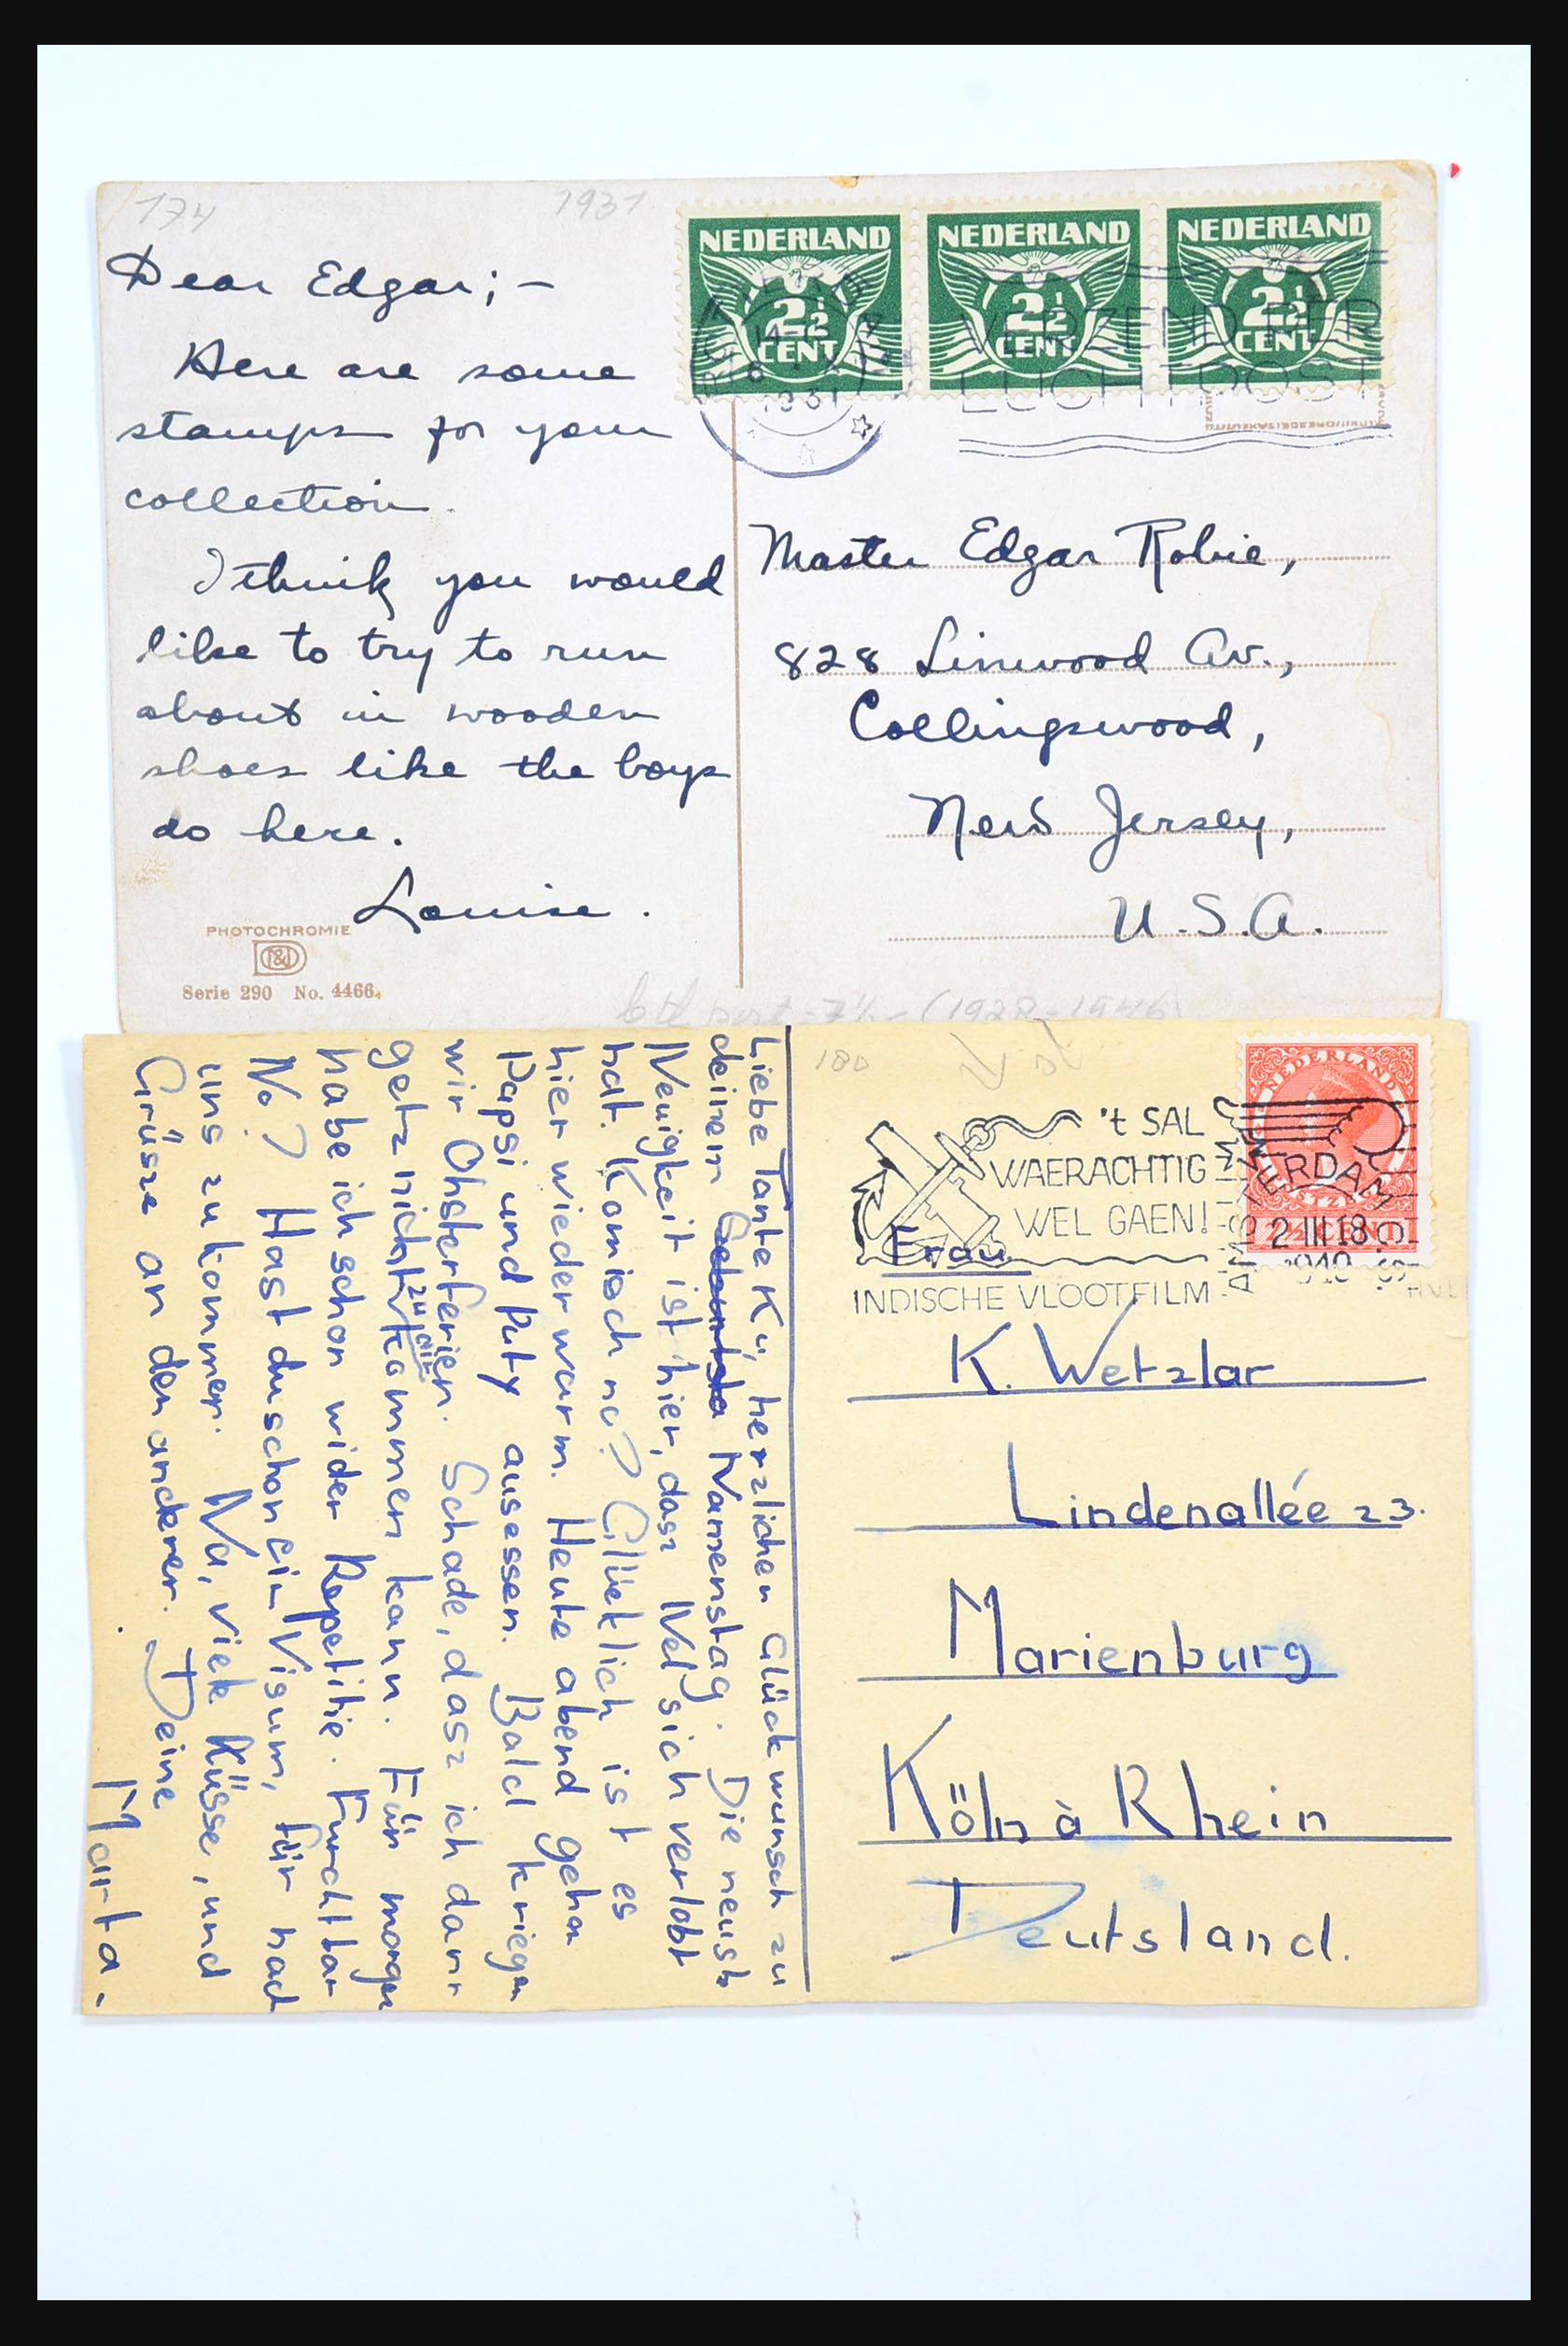 174
1931
NEDERLAND
2½
CENT
NEDERLAND
2½
CENT
NEDERLAND
2½
CENT
VERZEND PER
LUCHTPOST
Dear Edgar; -
Here are some
stamps for your
collection.
I think you would
like to try to run
about in wooden
shoes like the boys
do here.
Louise.
PHOTOCHROMIE
Serie 290 No. 4466.
Master Edgar Robie,
828 Linwood Av.,
Collingswood,
New Jersey,
U.S.A.
(1928-1946)
180
NEDERLAND
't SAL
WAERACHTIG
WEL GAEN!
INDISCHE VLOOTFILM
AMSTERDAM
2 III 18
1940
Frau
K. Wetzlar
Lindenallée 23.
Marienburg
Köln à Rhein
Deutsland.
Liebe Tante Kü, herzlichen Glückwunsch zu
deinem Namenstag. Die neuste
Neuigkeit ist hier, dasz Nel sich verlobt
hat. Komisch no? Glücklich ist es
hier wieder warm. Heute abend gehen
Pappi und Puty ausessen. Bald kriegen
wir Ohsterferien. Schade, dasz ich dann
getz nicht zu dir kommen kann. Für morgen
habe ich schon wider Repetitie. Furchtbar
No? Hast du schon ein Visum, für nach
uns zu kommen. Na, viele Küsse, und
Grüsze an den anderen. Deine
Marta.